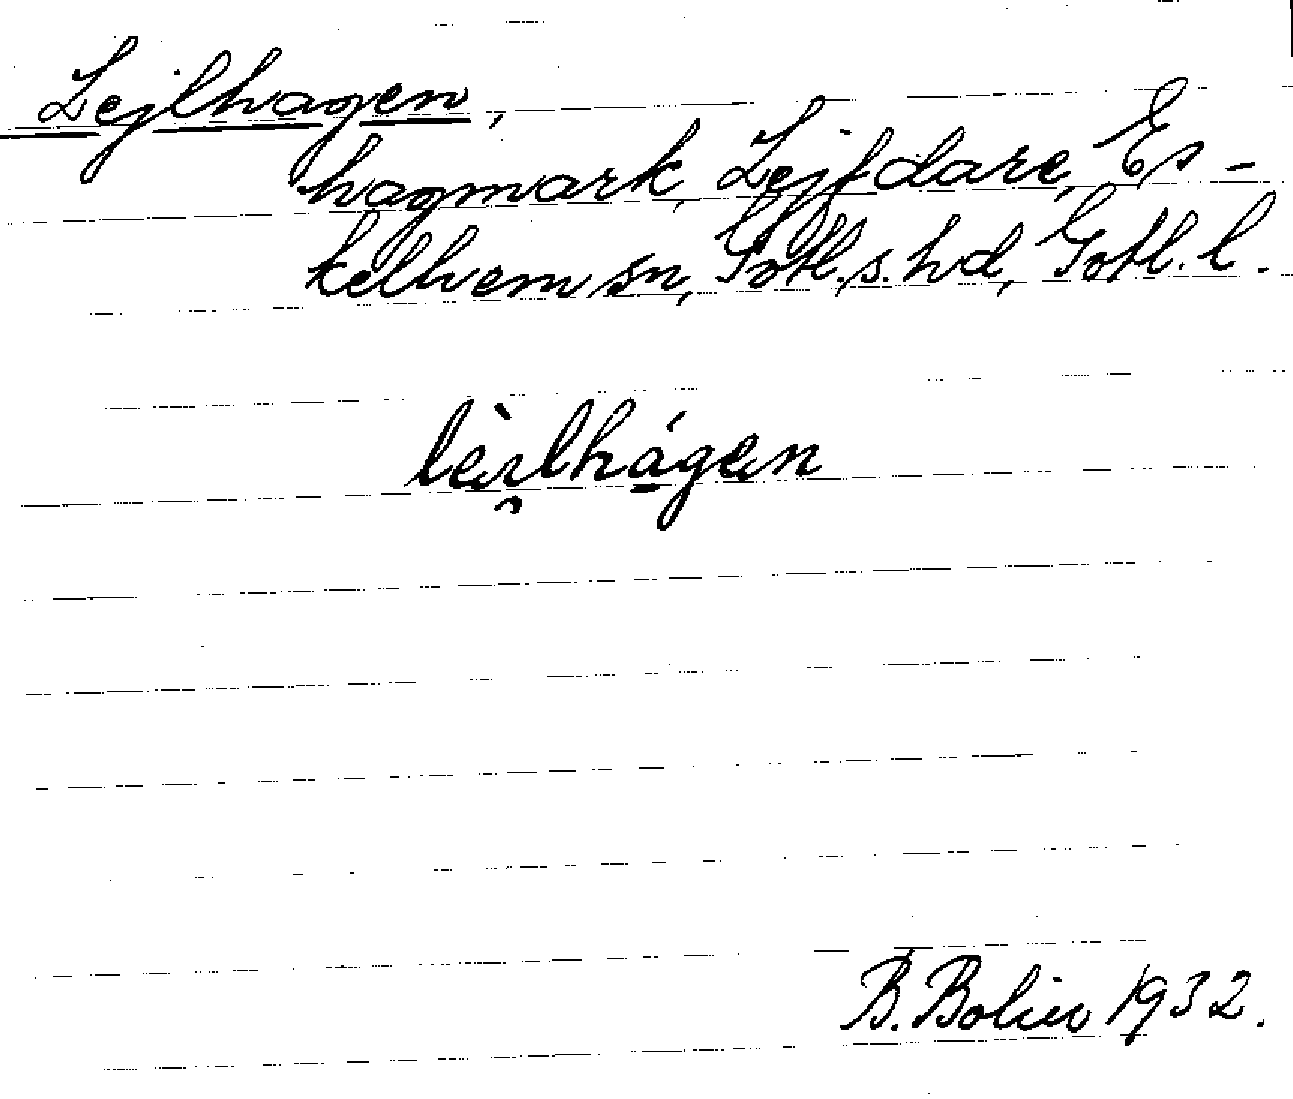 Lejlhagen,
hagmark, Lejfdare, Es-
kelhem sn, Gotl. s. hd, Gotl. l.
lèi̯lhágen
B. Bolin 1932.